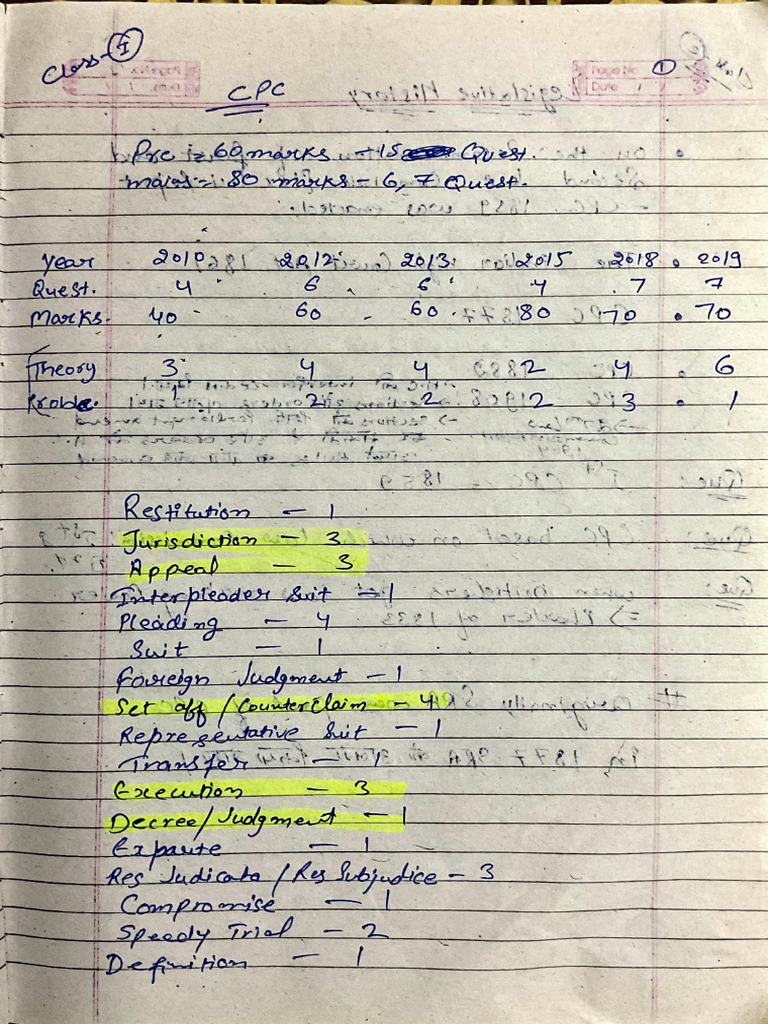 Class - I
Page No. 1
Date
CPC
Pre = 60 marks - 15 Quest.
mains = 80 marks - 6, 7 Quest.
Year 2010 2012 2013 2015 2018 2019
Quest. 4 6 6 4 7 7
Marks. 40 60 60 80 70 70
Theory 3 4 4 2 4 6
Proble 1 2 2 2 3 1
Restitution - 1
Jurisdiction - 3
Appeal - 3
Interpleader Suit - 1
Pleading - 4
Suit - 1
Foreign Judgment - 1
Set off / Counterclaim - 4
Representative Suit - 1
Transfer - 1
Execution - 3
Decree / Judgment - 1
Exparte - 1
Res Judicata / Res Subjudice - 3
Compromise - 1
Speedy Trial - 2
Definition - 1